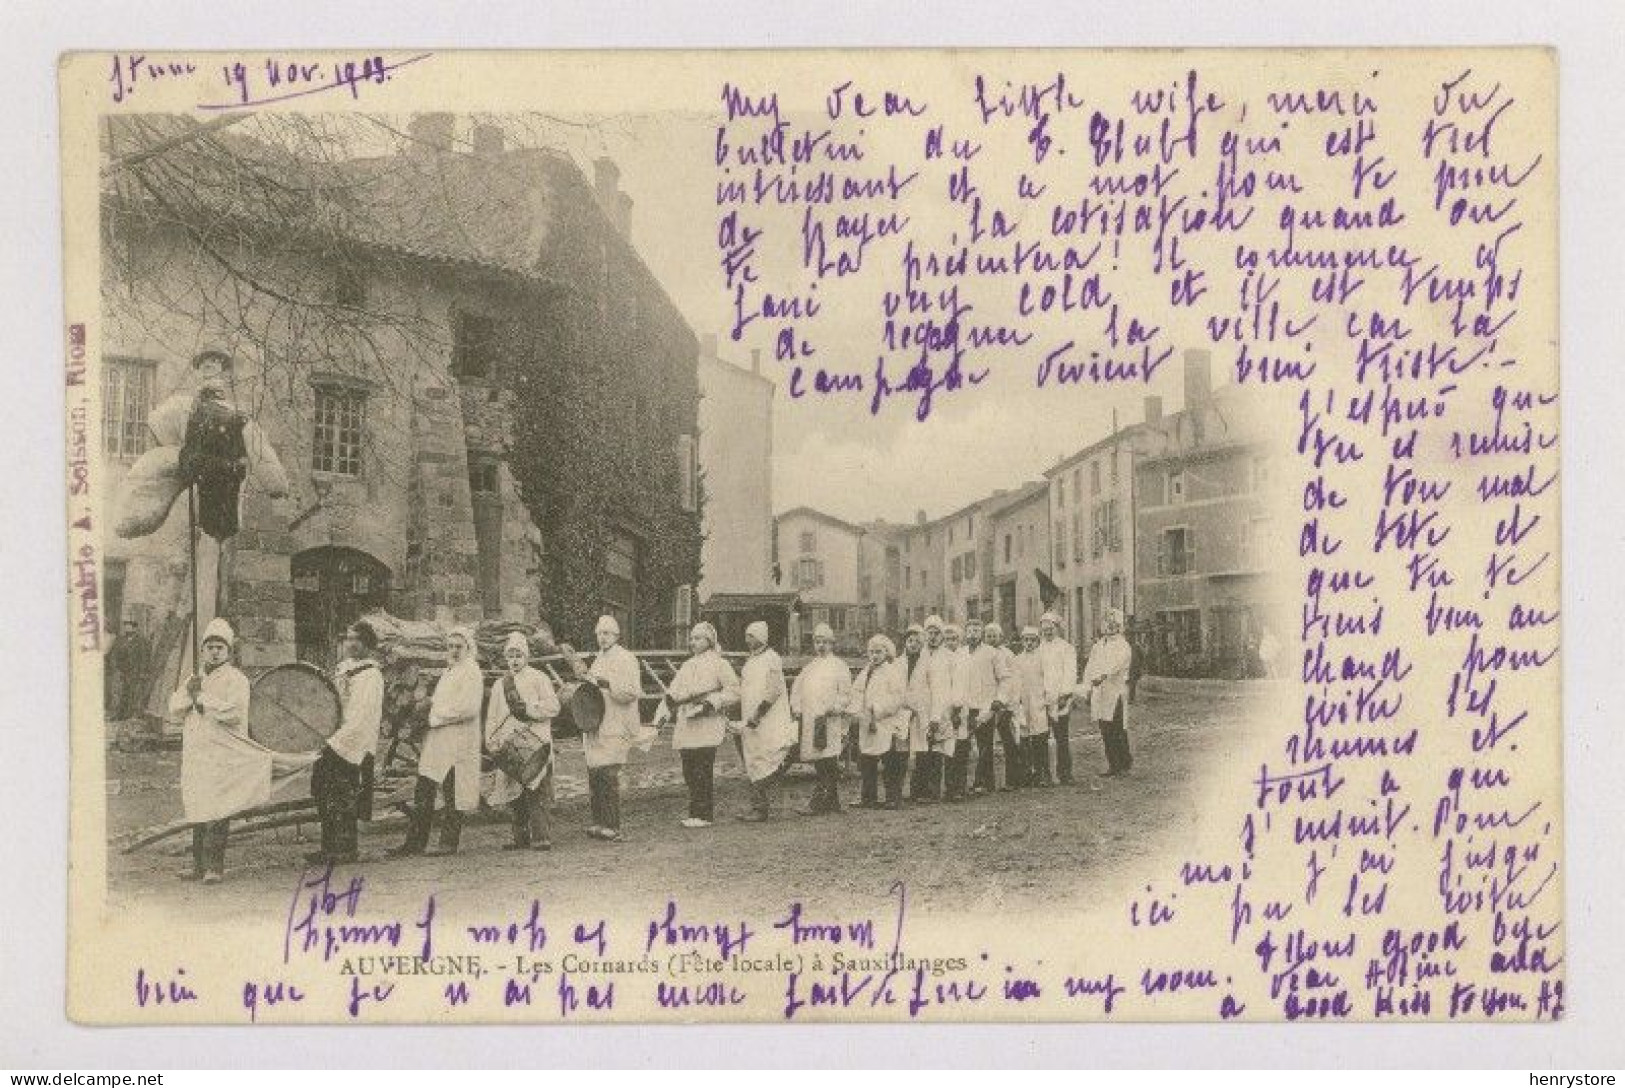 19 Nov. 1903.
My dear little wife, merci du
bulletin du T. Club qui est très
intéressant et a mot pour te prier
de payer la cotisation quand on
te la présentera! Il commence à
faire very cold et il est temps
de regagner la ville car la
campagne devient bien triste! -
J'espère que
tu es remise
de ton mal
de tête et
que tu te
tiens bien au
chaud pour
éviter les
rhumes et
tout a qui
s'ensuit. Pour
moi j'ai jusqu'
ici pu les éviter
bien que je n'ai pas encore fait le fire in my room. Allons good bye
dear and
a good kiss to you.
(Many things to your family
AUVERGNE. - Les Cornards (Fête locale) à Sauxillanges
Librairie A. Soisson, Riom
henrystore